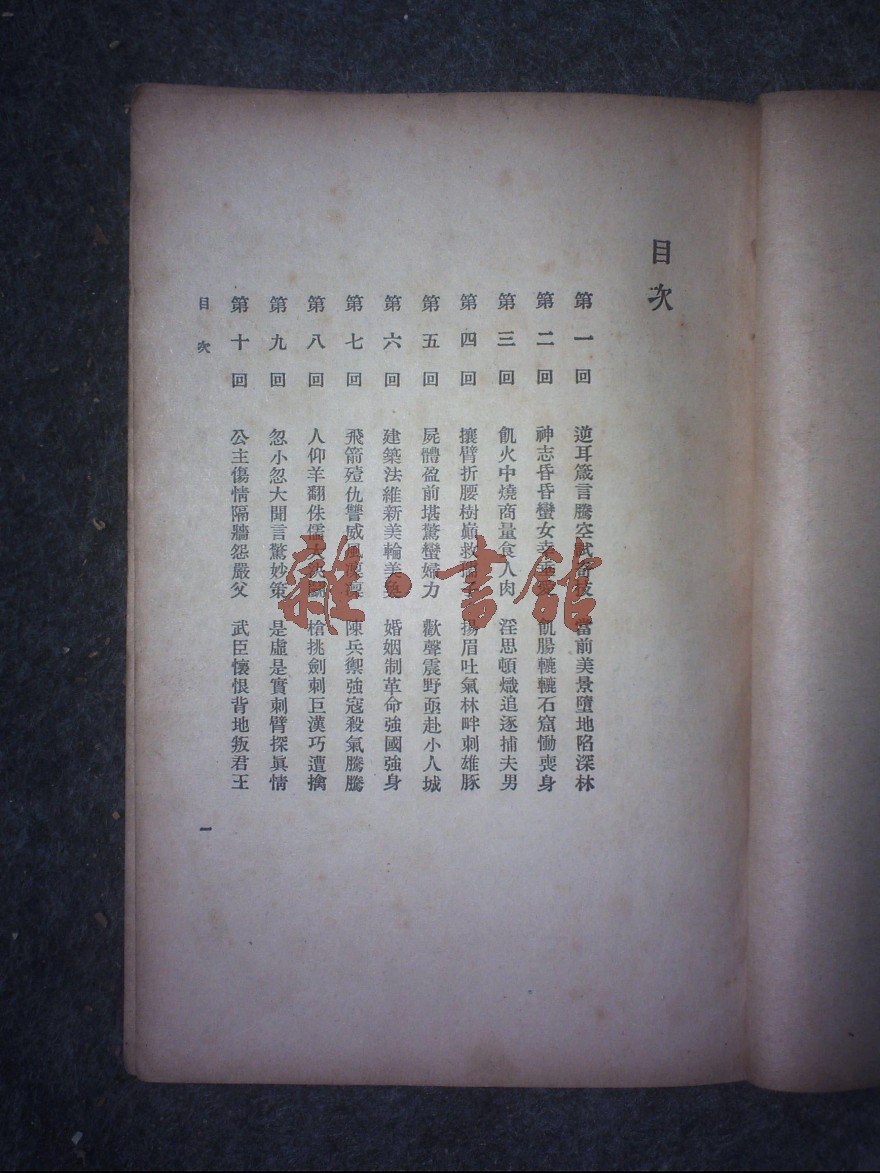 目次
第一回 逆耳箴言騰空試奇技 當前美景墮地陷深林
第二回 神志昏昏蠻女幸垂愛 飢腸轆轆石窟慟喪身
第三回 飢火中燒商量食人肉 淫思頓熾追逐捕夫男
第四回 攘臂折腰樹巔救 揚眉吐氣林畔刺雄豚
第五回 屍體盈前堪驚蠻婦力 歡聲震野亟赴小人城
第六回 建築法維新美輪美奐 婚姻制革命強國強身
第七回 飛箭殪仇讐威風凜凜 陳兵禦強寇殺氣騰騰
第八回 人仰羊翻侏儒大決鬪 槍挑劍刺巨漢巧遭擒
第九回 忽小忽大聞言驚妙策 是虛是實刺臂探眞情
第十回 公主傷情隔牆怨嚴父 武臣懷恨背地叛君王
目次
一
雜·書館